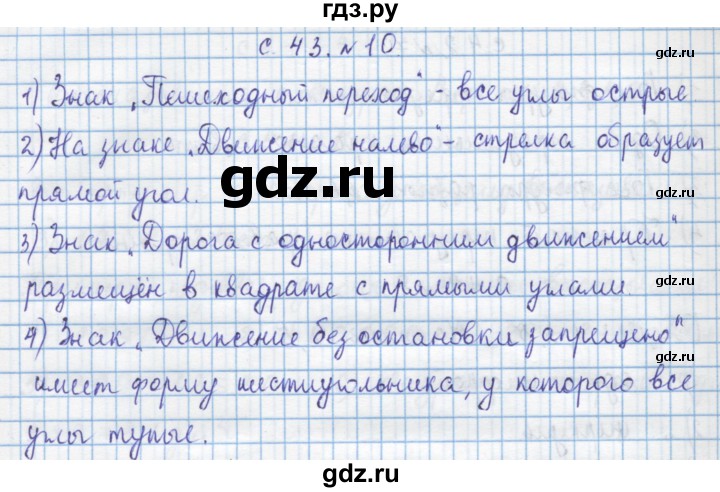 гдз.ру
с. 43. №10.
1) Знак „Пешеходный переход" - все углы острые.
2) На знаке „Движение налево" - стрелка образует
прямой угол.
3) Знак „Дорога с односторонним движением"
размещён в квадрате с прямыми углами.
4) Знак „Движение без остановки запрещено"
имеет форму шестиугольника, у которого все
углы тупые.
gdz.ru
gdz.ru
gdz.ru
gdz.ru
gdz.ru
gdz.ru
gdz.ru
gdz.ru
gdz.ru
gdz.ru
gdz.ru